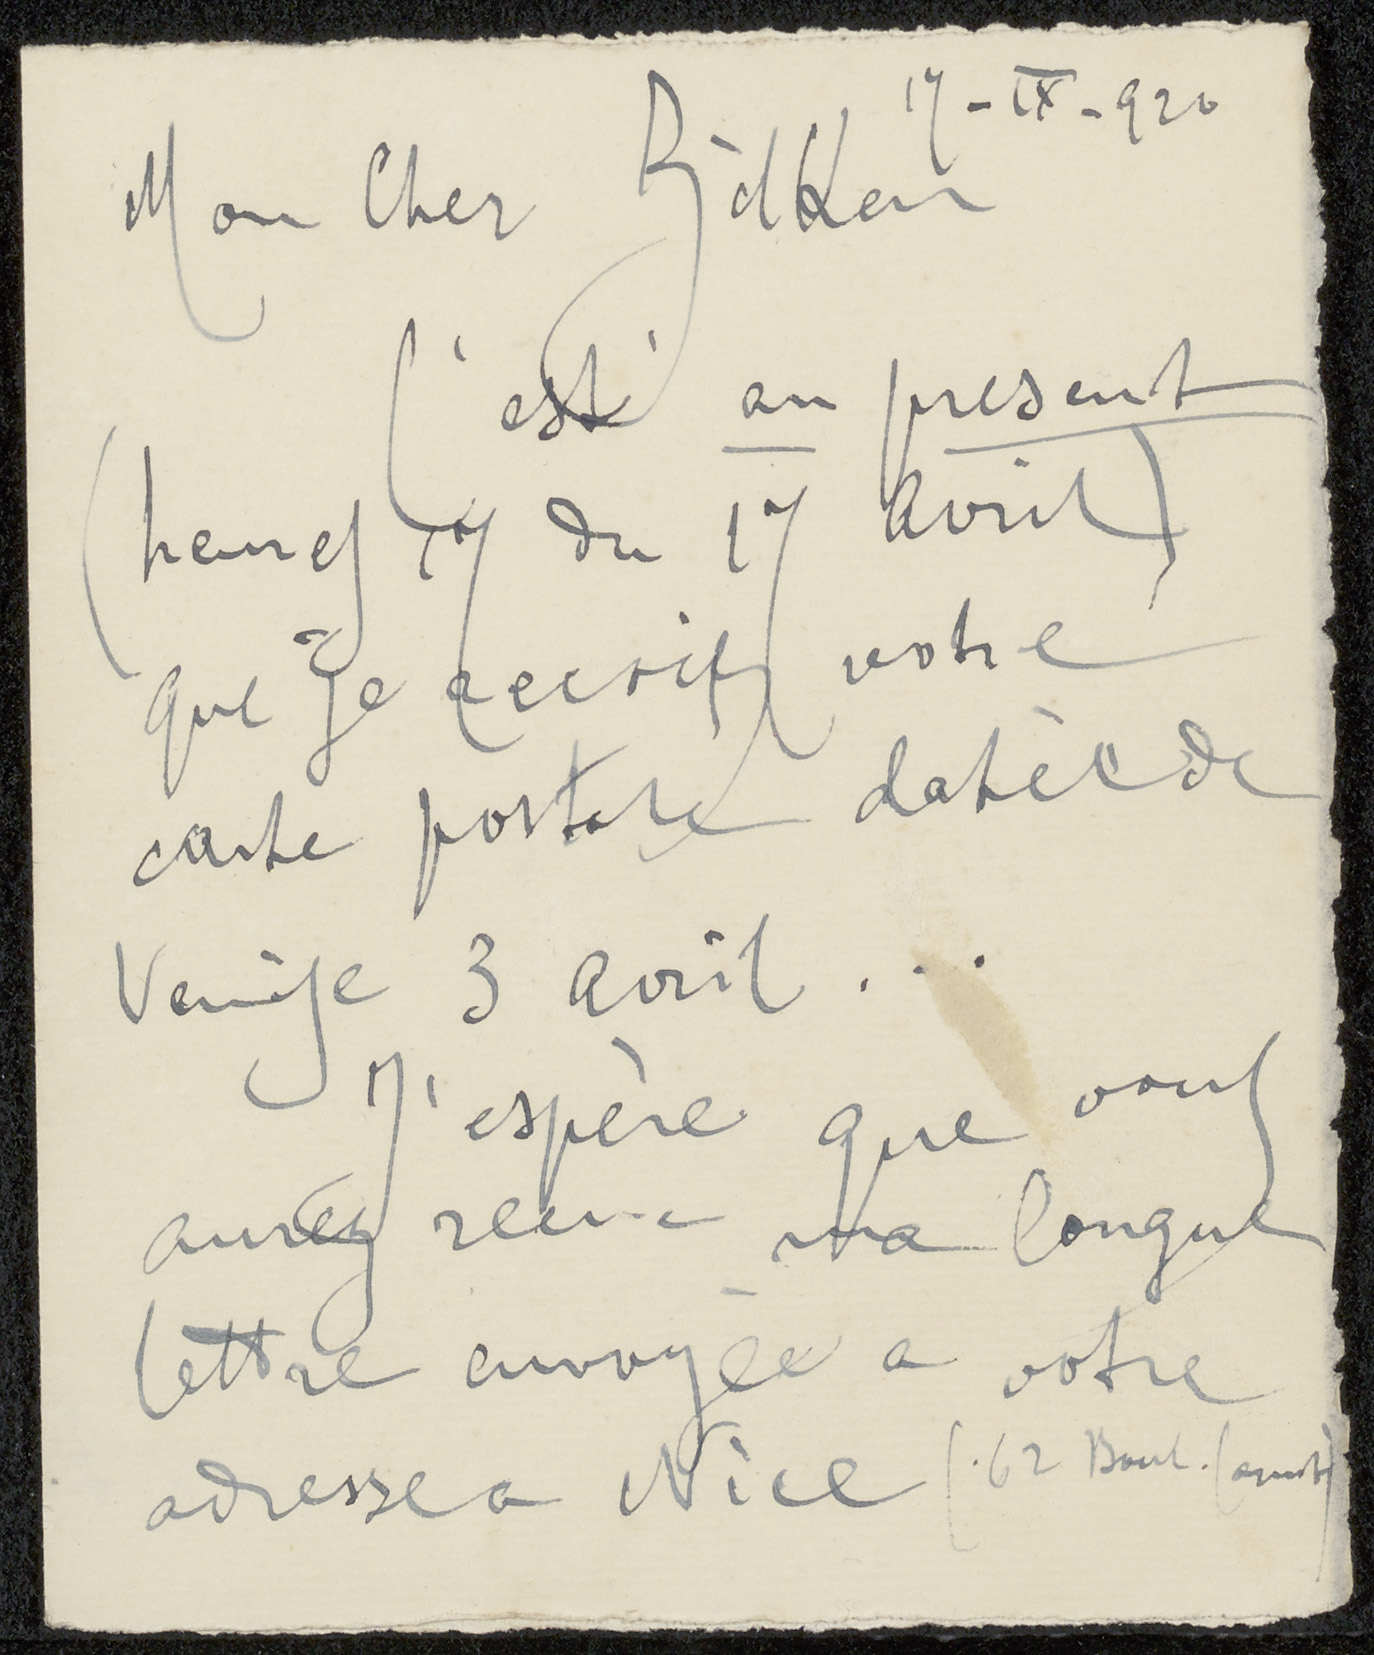 17 - IX - 920
Mon Cher Bidken
C'est au present
(heures 17 du 17 avril)
que je recois votre
carte postale datèe de
Venise 3 avril . . .
J'espère que vous
aurez recue ma longue
lettre envoyèe a votre
adresse a Nice (62 Boul. Carnot)